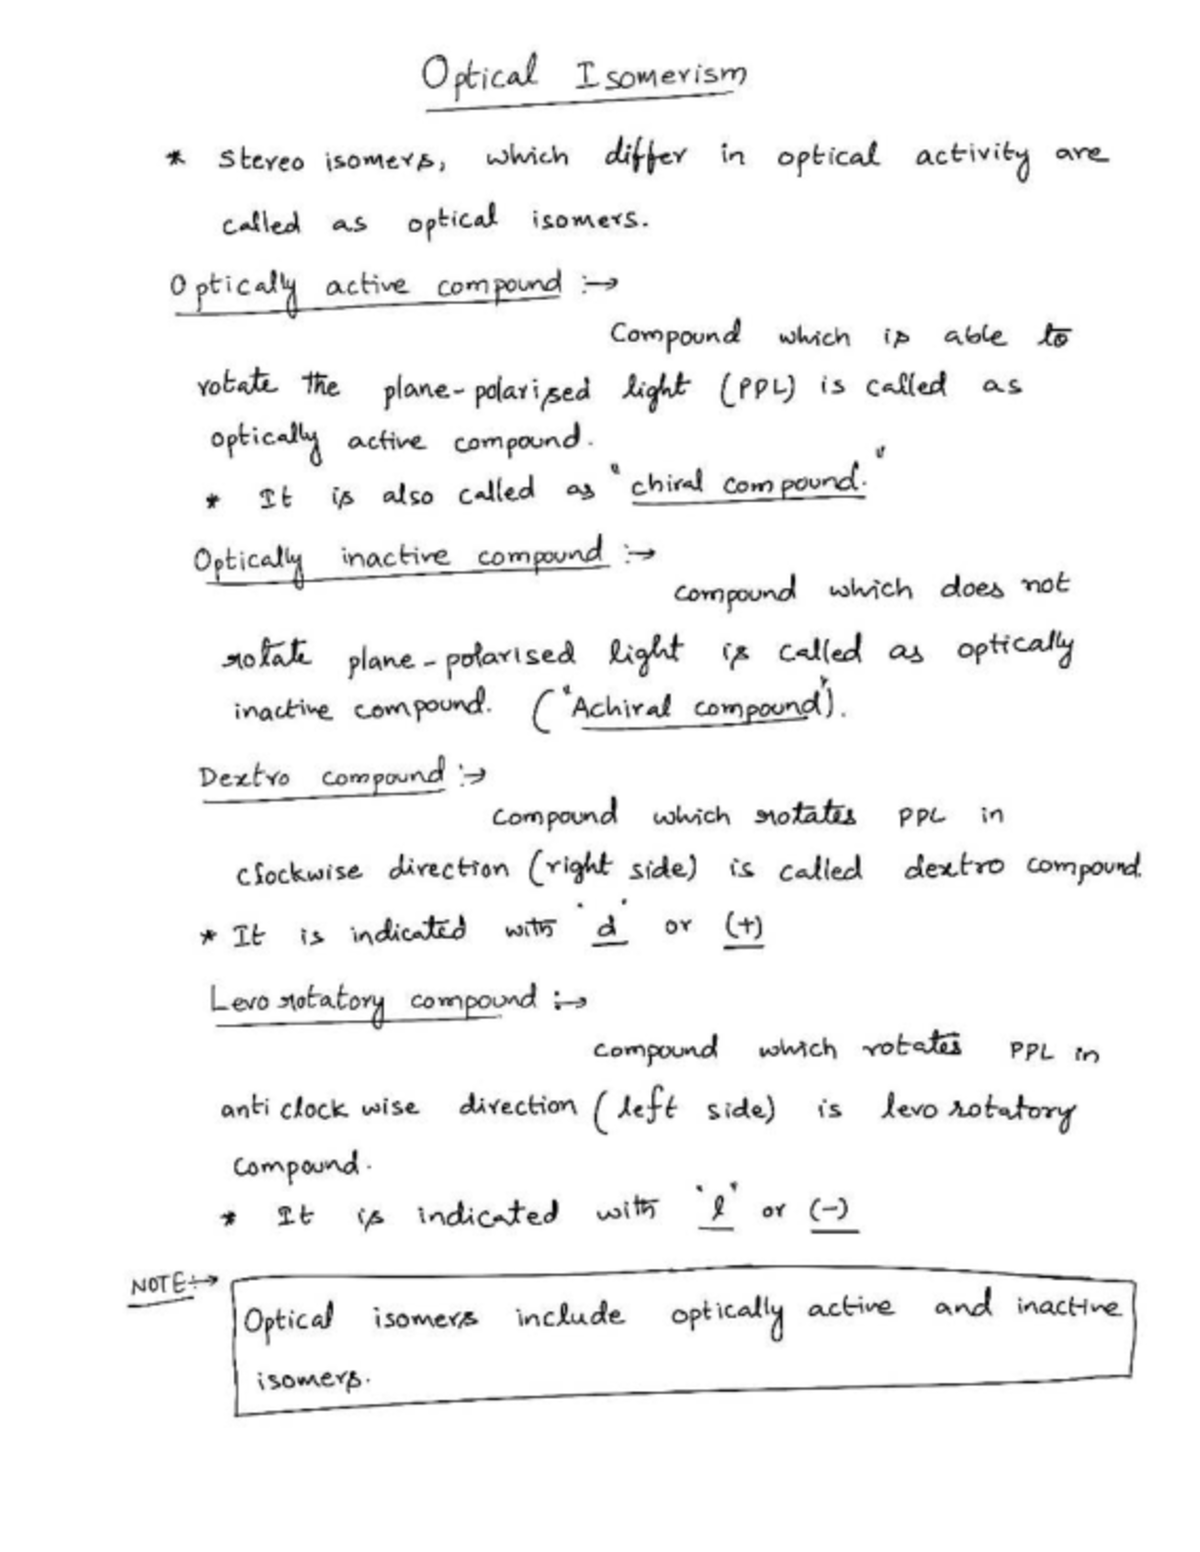 Optical Isomerism
* Stereo isomers, which differ in optical activity are
called as optical isomers.
Optically active compound :→
Compound which is able to
rotate the plane-polarised light (PPL) is called as
optically active compound.
* It is also called as "chiral compound."
Optically inactive compound :→
compound which does not
rotate plane-polarised light is called as optically
inactive compound. ("Achiral compound").
Dextro compound :→
compound which rotates PPL in
clockwise direction (right side) is called dextro compound.
* It is indicated with 'd' or (+)
Levo rotatory compound :→
compound which rotates PPL in
anti clock wise direction (left side) is levo rotatory
compound.
* It is indicated with 'l' or (-)
NOTE :→
Optical isomers include optically active and inactive
isomers.